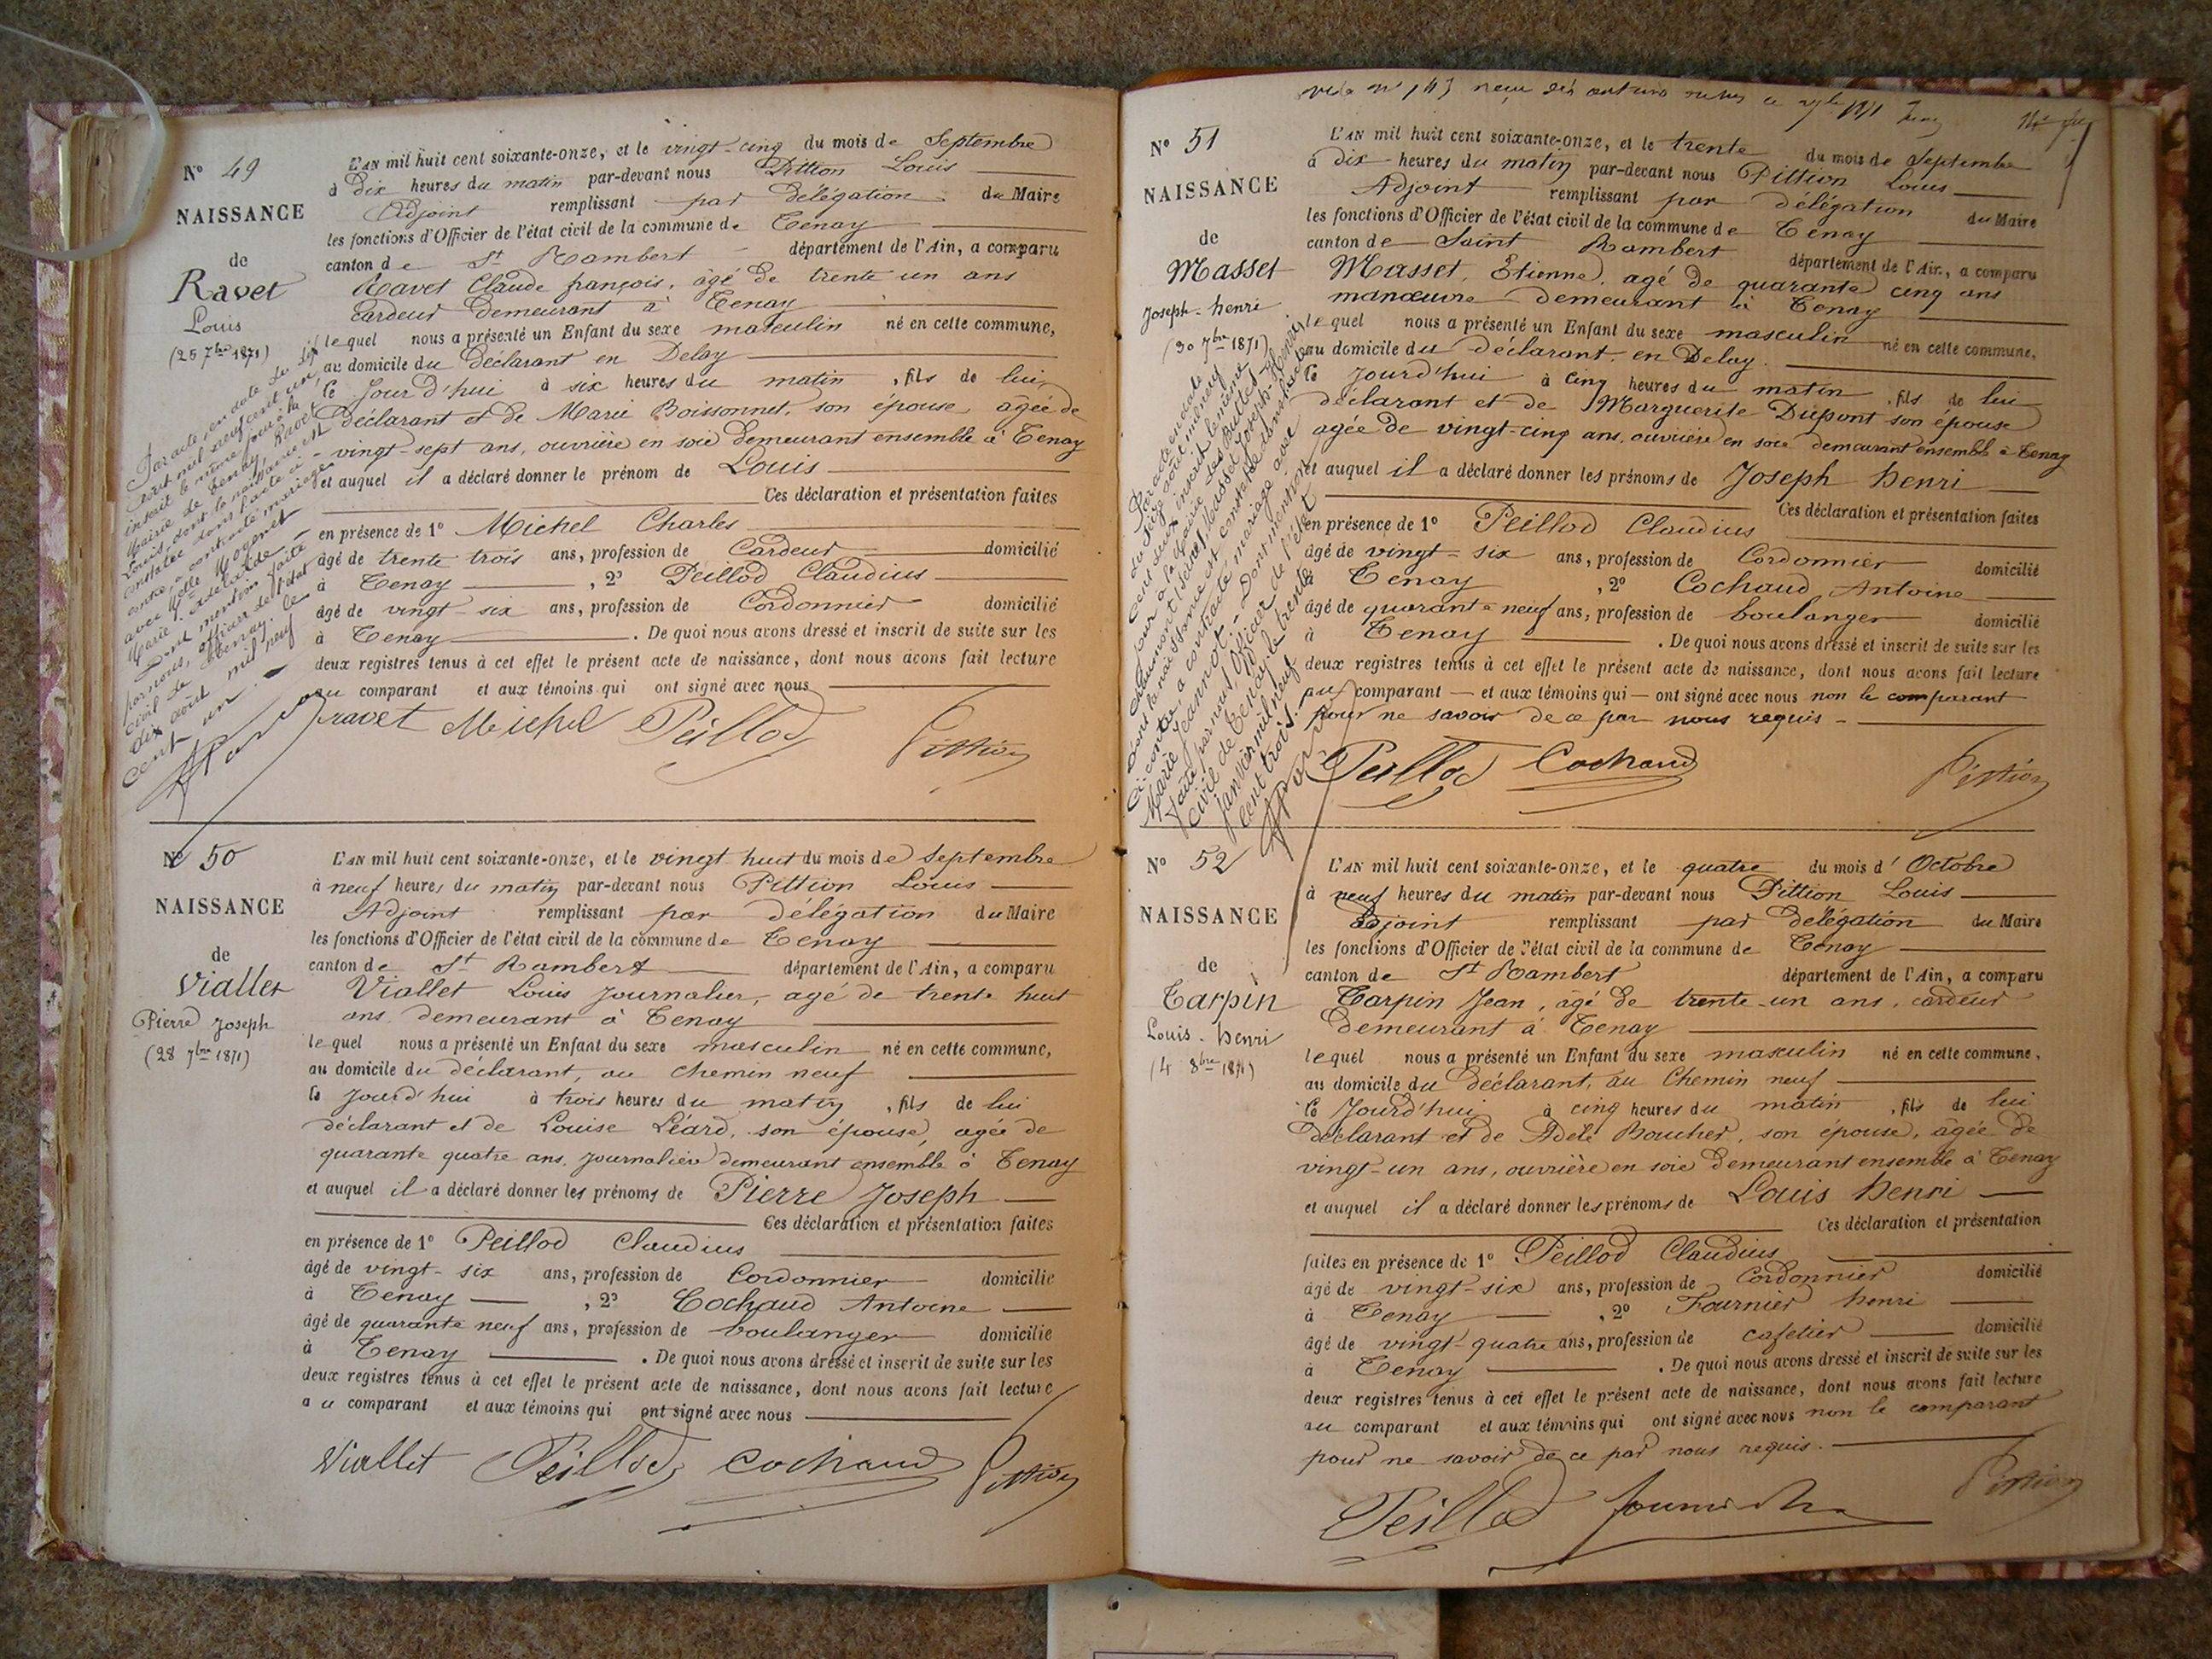 Nº 49
NAISSANCE
de
Ravet
Louis
(25 7bre 1871)
L'AN mil huit cent soixante-onze, et le vingt-cinq du mois de Septembre
à Dix heures du matin par-devant nous Pittion Louis
Adjoint remplissant par délégation du Maire
les fonctions d'Officier de l'état civil de la commune de Tenay
canton de St Rambert département de l'Ain, a comparu
Ravet Claude françois, âgé de trente un ans
cardeur demeurant à Tenay
lequel nous a présenté un Enfant du sexe masculin né en cette commune,
au domicile du déclarant en Delay
le Jour d'hui à six heures du matin, fils de lui
déclarant et de Marie Boissonnet, son épouse, agée de
vingt-sept ans, ouvrière en soie demeurant ensemble à Tenay
et auquel il a déclaré donner le prénom de Louis
Ces déclaration et présentation faites
en présence de 1º Michel Charles
âgé de trente trois ans, profession de Cardeur domicilié
à Tenay, 2º Peillod Claudius
âgé de vingt-six ans, profession de Cordonnier domicilié
à Tenay. De quoi nous avons dressé et inscrit de suite sur les
deux registres tenus à cet effet le présent acte de naissance, dont nous avons fait lecture
au comparant et aux témoins qui ont signé avec nous
ravet Michel Peillod Pittion
Par acte en date du dix
août mil neuf cent un,
inscrit le même jour à la
Mairie de Tenay, Ravet
Louis, dont la naissance est
constatée dans l'acte ci-
contre, a contracté mariage
avec Mogenet
Marie
Dont mention faite
par nous, officier de l'état
civil de Tenay, le
dix août mil neuf
cent un.
Nº 50
NAISSANCE
de
Viallet
Pierre Joseph
(28 7bre 1871)
L'AN mil huit cent soixante-onze, et le vingt huit du mois de Septembre
à neuf heures du matin par-devant nous Pittion Louis
Adjoint remplissant par délégation du Maire
les fonctions d'Officier de l'état civil de la commune de Tenay
canton de St Rambert département de l'Ain, a comparu
Viallet Louis Journalier, agé de trente huit
ans demeurant à Tenay
lequel nous a présenté un Enfant du sexe masculin né en cette commune,
au domicile du déclarant, au chemin neuf
le Jourd'hui à trois heures du matin, fils de lui
déclarant et de Louise Léard, son épouse, agée de
quarante quatre ans, journalière demeurant ensemble à Tenay
et auquel il a déclaré donner les prénoms de Pierre Joseph
Ces déclaration et présentation faites
en présence de 1º Peillod Claudius
âgé de vingt-six ans, profession de Cordonnier domicilié
à Tenay, 2º Cochaud Antoine
âgé de quarante neuf ans, profession de boulanger domicilié
à Tenay. De quoi nous avons dressé et inscrit de suite sur les
deux registres tenus à cet effet le présent acte de naissance, dont nous avons fait lecture
au comparant et aux témoins qui ont signé avec nous
Viallet Peillod Cochaud Pittion
Nº 51
NAISSANCE
de
Masset
Joseph-henri
(30 7bre 1871)
L'AN mil huit cent soixante-onze, et le trente du mois de Septembre
à dix heures du matin par-devant nous Pittion Louis
Adjoint remplissant par délégation du Maire
les fonctions d'Officier de l'état civil de la commune de Tenay
canton de Saint Rambert département de l'Ain, a comparu
Masset, Etienne, agé de quarante cinq ans
manœuvre demeurant à Tenay
lequel nous a présenté un Enfant du sexe masculin né en cette commune,
au domicile du déclarant, en Delay.
le Jourd'hui à cinq heures du matin, fils de lui
déclarant et de Marguerite Dupont son épouse
agée de vingt-cinq ans, ouvrière en soie demeurant ensemble à Tenay
et auquel il a déclaré donner les prénoms de Joseph henri
Ces déclaration et présentation faites
en présence de 1º Peillod Claudius
âgé de vingt-six ans, profession de Cordonnier domicilié
à Tenay, 2º Cochaud Antoine
âgé de quarante neuf ans, profession de boulanger domicilié
à Tenay. De quoi nous avons dressé et inscrit de suite sur les
deux registres tenus à cet effet le présent acte de naissance, dont nous avons fait lecture
au comparant et aux témoins qui ont signé avec nous non le comparant
pour ne savoir de ce par nous requis
Peillod Cochaud Pittion
Par acte en date
du seize août mil neuf
cent deux inscrit le même
jour à la Mairie des Buttes
Chaumont, Masset Joseph-Henri,
dont la naissance est constatée dans l'acte
ci-contre, a contracté mariage avec
Marie Jeannot. Dont mention
faite par nous, Officier de l'état
civil de Tenay, le trente
janvier mil neuf
cent trois.
Nº 52
NAISSANCE
de
Tarpin
Louis-henri
(4 8bre 1871)
L'AN mil huit cent soixante-onze, et le quatre du mois d'Octobre
à neuf heures du matin par-devant nous Pittion Louis
adjoint remplissant par délégation du Maire
les fonctions d'Officier de l'état civil de la commune de Tenay
canton de St Rambert département de l'Ain, a comparu
Tarpin Jean, âgé de trente-un ans, cardeur
demeurant à Tenay
lequel nous a présenté un Enfant du sexe masculin né en cette commune,
au domicile du déclarant, au Chemin neuf
le Jourd'hui à cinq heures du matin, fils de lui
déclarant et de Adèle Boucher, son épouse, âgée de
vingt-un ans, ouvrière en soie demeurant ensemble à Tenay
et auquel il a déclaré donner les prénoms de Louis henri
Ces déclaration et présentation
faites en présence de 1º Peillod Claudius
âgé de vingt-six ans, profession de Cordonnier domicilié
à Tenay, 2º Fournier henri
âgé de vingt-quatre ans, profession de cafetier domicilié
à Tenay. De quoi nous avons dressé et inscrit de suite sur les
deux registres tenus à cet effet le présent acte de naissance, dont nous avons fait lecture
au comparant et aux témoins qui ont signé avec nous non le comparant
pour ne savoir de ce par nous requis.
Peillod fournier Pittion